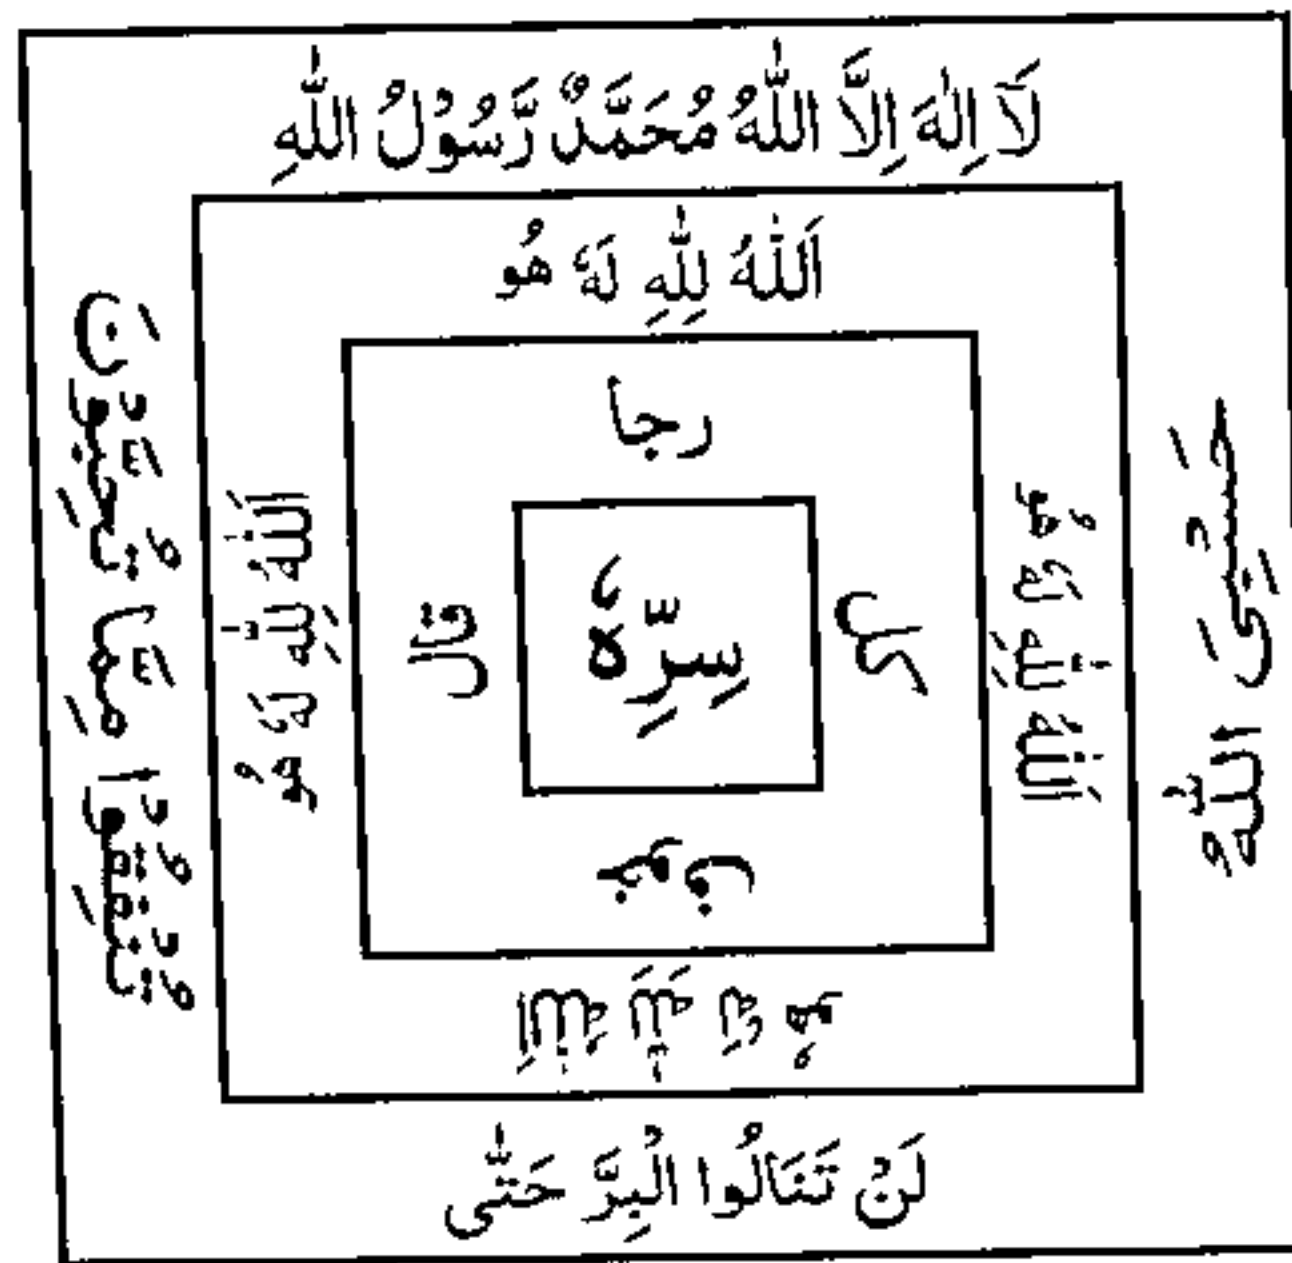 لَآ اِلٰهَ اِلَّا اللّٰهُ مُحَمَّدٌ رَّسُوْلُ اللّٰهِ
حَسْبِیَ اللّٰهُ
لَنْ تَنَالُوا الْبِرَّ حَتّٰی
تُنْفِقُوْا مِمَّا تُحِبُّوْنَ
اَللّٰهُ لِلّٰهِ لَهٗ هُو
اَللّٰهُ لِلّٰهِ لَهٗ هُو
اَللّٰهُ لِلّٰهِ لَهٗ هُو
اَللّٰهُ لِلّٰهِ لَهٗ هُو
رجا
قال
سِرِّهٗ